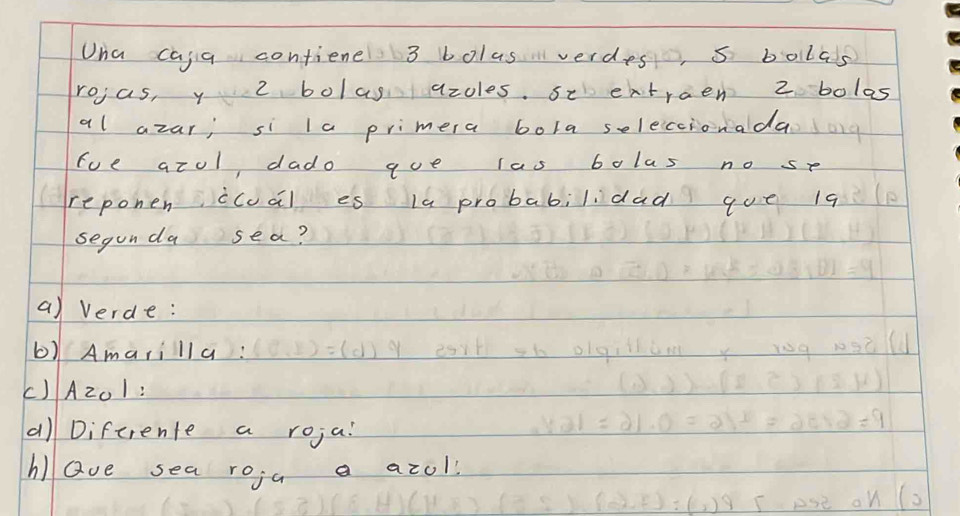 Una caja contiene 3 bolas verdes, 5 bolas
rojas, y 2 bolas azules. se extraen 2 bolas
al azar; si la primera bola seleccionada
fue azul, dado que las bolas no se
reponen ¿cuál es la probabilidad que la
segunda sea?
a) Verde:
b) Amarilla:
c) Azul:
d) Diferente a roja:
h) Que sea roja o azul: